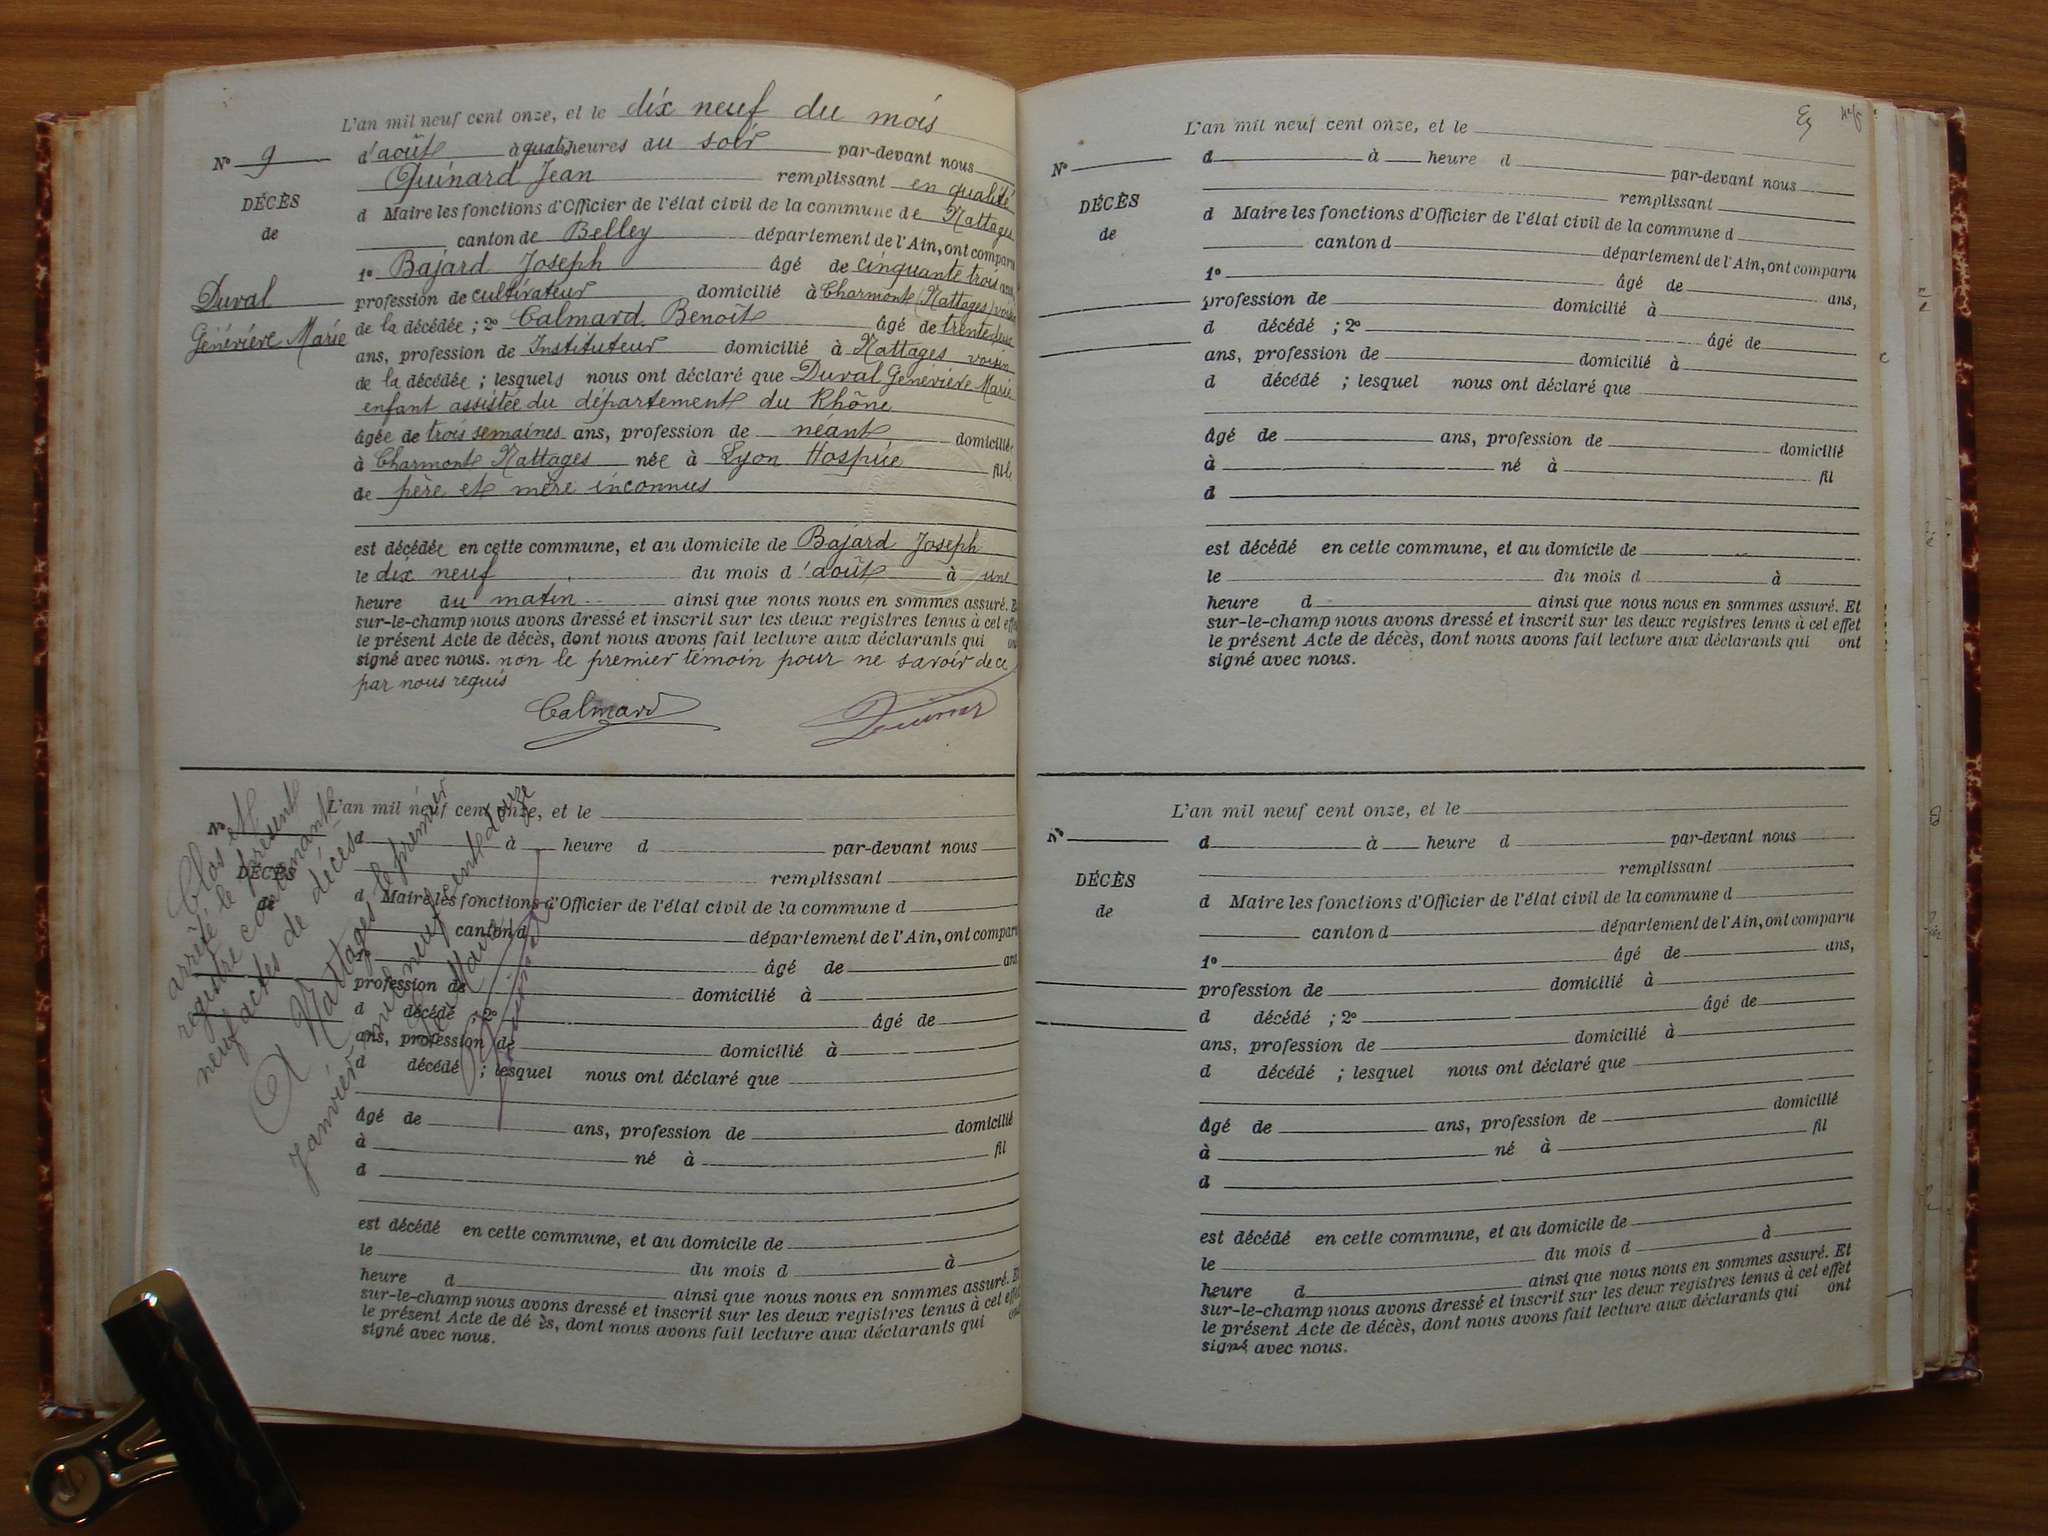 L'an mil neuf cent onze, et le dix neuf du mois
N° 9 d'août à quatre heures du soir par-devant nous
Guinard Jean remplissant en qualité
DÉCÈS
de
d Maire les fonctions d'Officier de l'état civil de la commune de Nattages
canton de Belley département de l'Ain, ont comparu
1° Bajard Joseph âgé de cinquante trois ans,
Duval
Généviève Marie
profession de cultivateur domicilié à Charmont (Nattages) voisin
de la décédée ; 2° Calmard Benoît âgé de trente
ans, profession de Instituteur domicilié à Nattages voisin
de la décédée ; lesquels nous ont déclaré que Duval Généviève Marie
enfant assistée du département du Rhône
âgée de trois semaines ans, profession de néant domiciliée
à Charmont Nattages née à Lyon Hospice fille
de père et mère inconnus
est décédée en cette commune, et au domicile de Bajard Joseph
le dix neuf du mois d'août à une
heure du matin ainsi que nous nous en sommes assuré. Et
sur-le-champ nous avons dressé et inscrit sur les deux registres tenus à cet effet
le présent Acte de décès, dont nous avons fait lecture aux déclarants qui ont
signé avec nous. non le premier témoin pour ne savoir de ce
par nous requis
Calmard Guinard
Clos et
arrêté le présent
registre contenant
neuf actes de décès
A Nattages le premier
janvier mil neuf cent douze
Le Maire
L'an mil neuf cent onze, et le
N°
d à heure d par-devant nous
remplissant
DÉCÈS
de
d Maire les fonctions d'Officier de l'état civil de la commune d
canton d département de l'Ain, ont comparu
âgé de ans
profession de domicilié à
d décédé ; 2° âgé de
ans, profession de domicilié à
d décédé ; lesquel nous ont déclaré que
âgé de ans, profession de domicilié
à né à fil
d
est décédé en cette commune, et au domicile de
le du mois d à
heure d ainsi que nous nous en sommes assuré. Et
sur-le-champ nous avons dressé et inscrit sur les deux registres tenus à cet effet
le présent Acte de dé ès, dont nous avons fait lecture aux déclarants qui ont
signé avec nous.
L'an mil neuf cent onze, et le
N°
d à heure d par-devant nous
remplissant
DÉCÈS
de
d Maire les fonctions d'Officier de l'état civil de la commune d
canton d département de l'Ain, ont comparu
1° âgé de ans,
profession de domicilié à
d décédé ; 2° âgé de
ans, profession de domicilié à
d décédé ; lesquel nous ont déclaré que
âgé de ans, profession de domicilié
à né à fil
d
est décédé en cette commune, et au domicile de
le du mois d à
heure d ainsi que nous nous en sommes assuré. Et
sur-le-champ nous avons dressé et inscrit sur les deux registres tenus à cet effet
le présent Acte de décès, dont nous avons fait lecture aux déclarants qui ont
signé avec nous.
L'an mil neuf cent onze, et le
N°
d à heure d par-devant nous
remplissant
DÉCÈS
de
d Maire les fonctions d'Officier de l'état civil de la commune d
canton d département de l'Ain, ont comparu
1° âgé de ans,
profession de domicilié à
d décédé ; 2° âgé de
ans, profession de domicilié à
d décédé ; lesquel nous ont déclaré que
âgé de ans, profession de domicilié
à né à fil
d
est décédé en cette commune, et au domicile de
le du mois d à
heure d ainsi que nous nous en sommes assuré. Et
sur-le-champ nous avons dressé et inscrit sur les deux registres tenus à cet effet
le présent Acte de décès, dont nous avons fait lecture aux déclarants qui ont
signé avec nous.